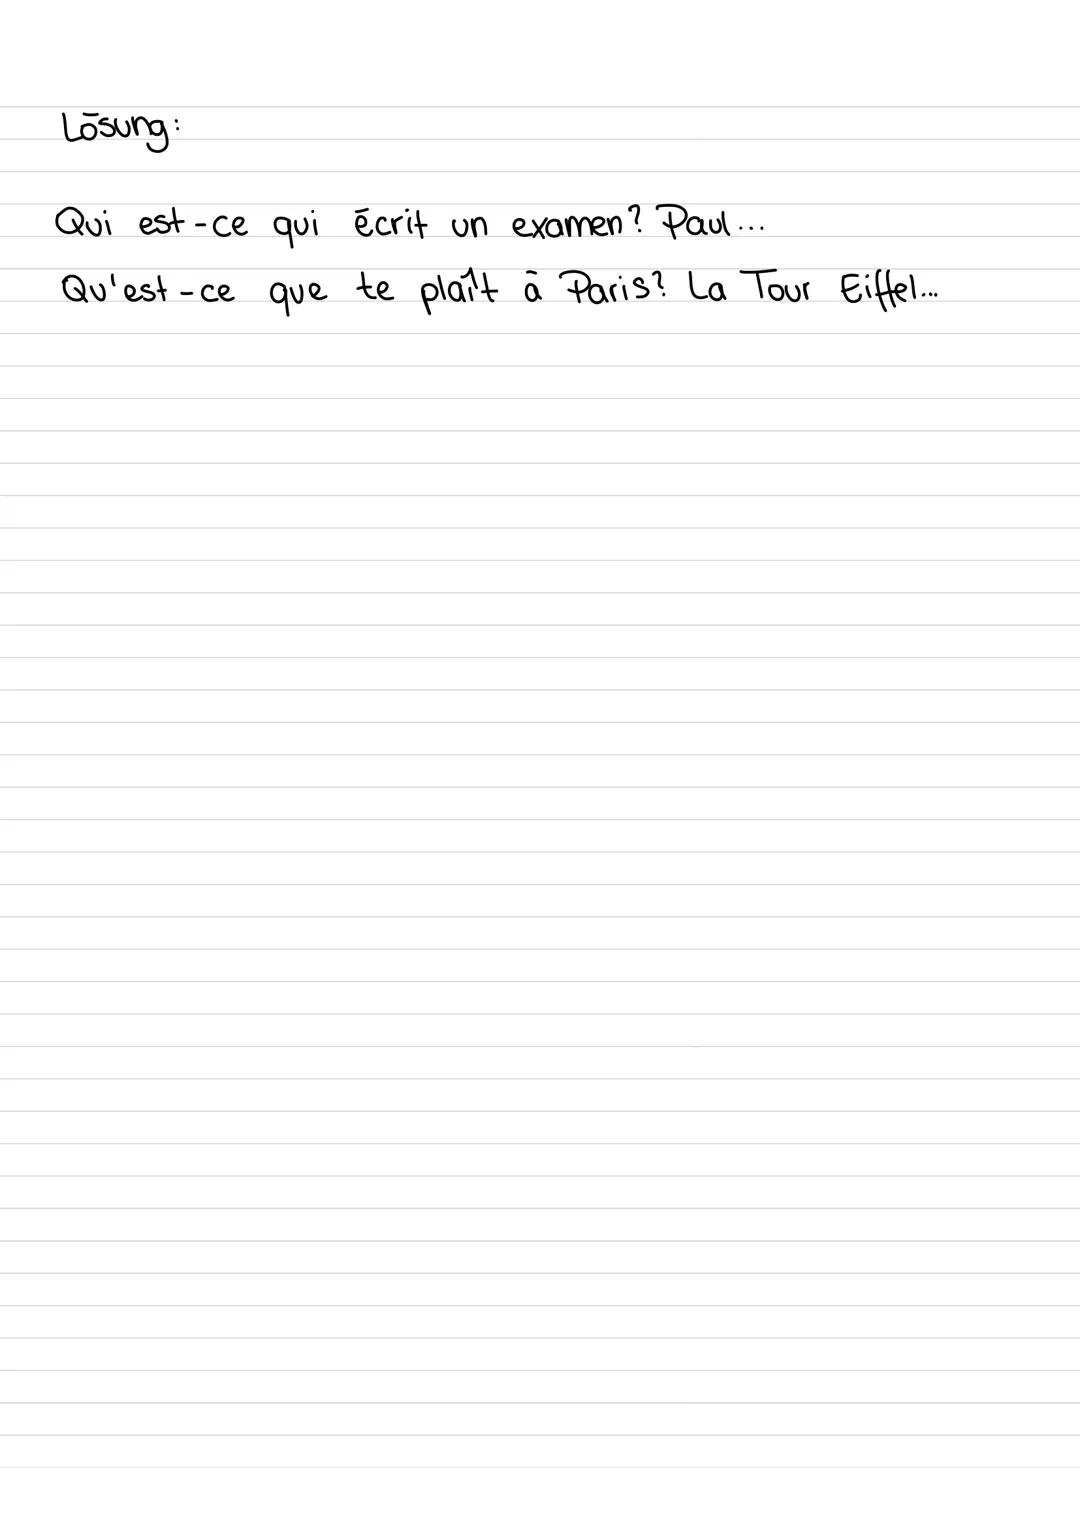 Lösung:
Qui est-ce qui écrit un examen? Paul...
Qu'est-ce que te plaît à Paris? La Tour Eiffel...